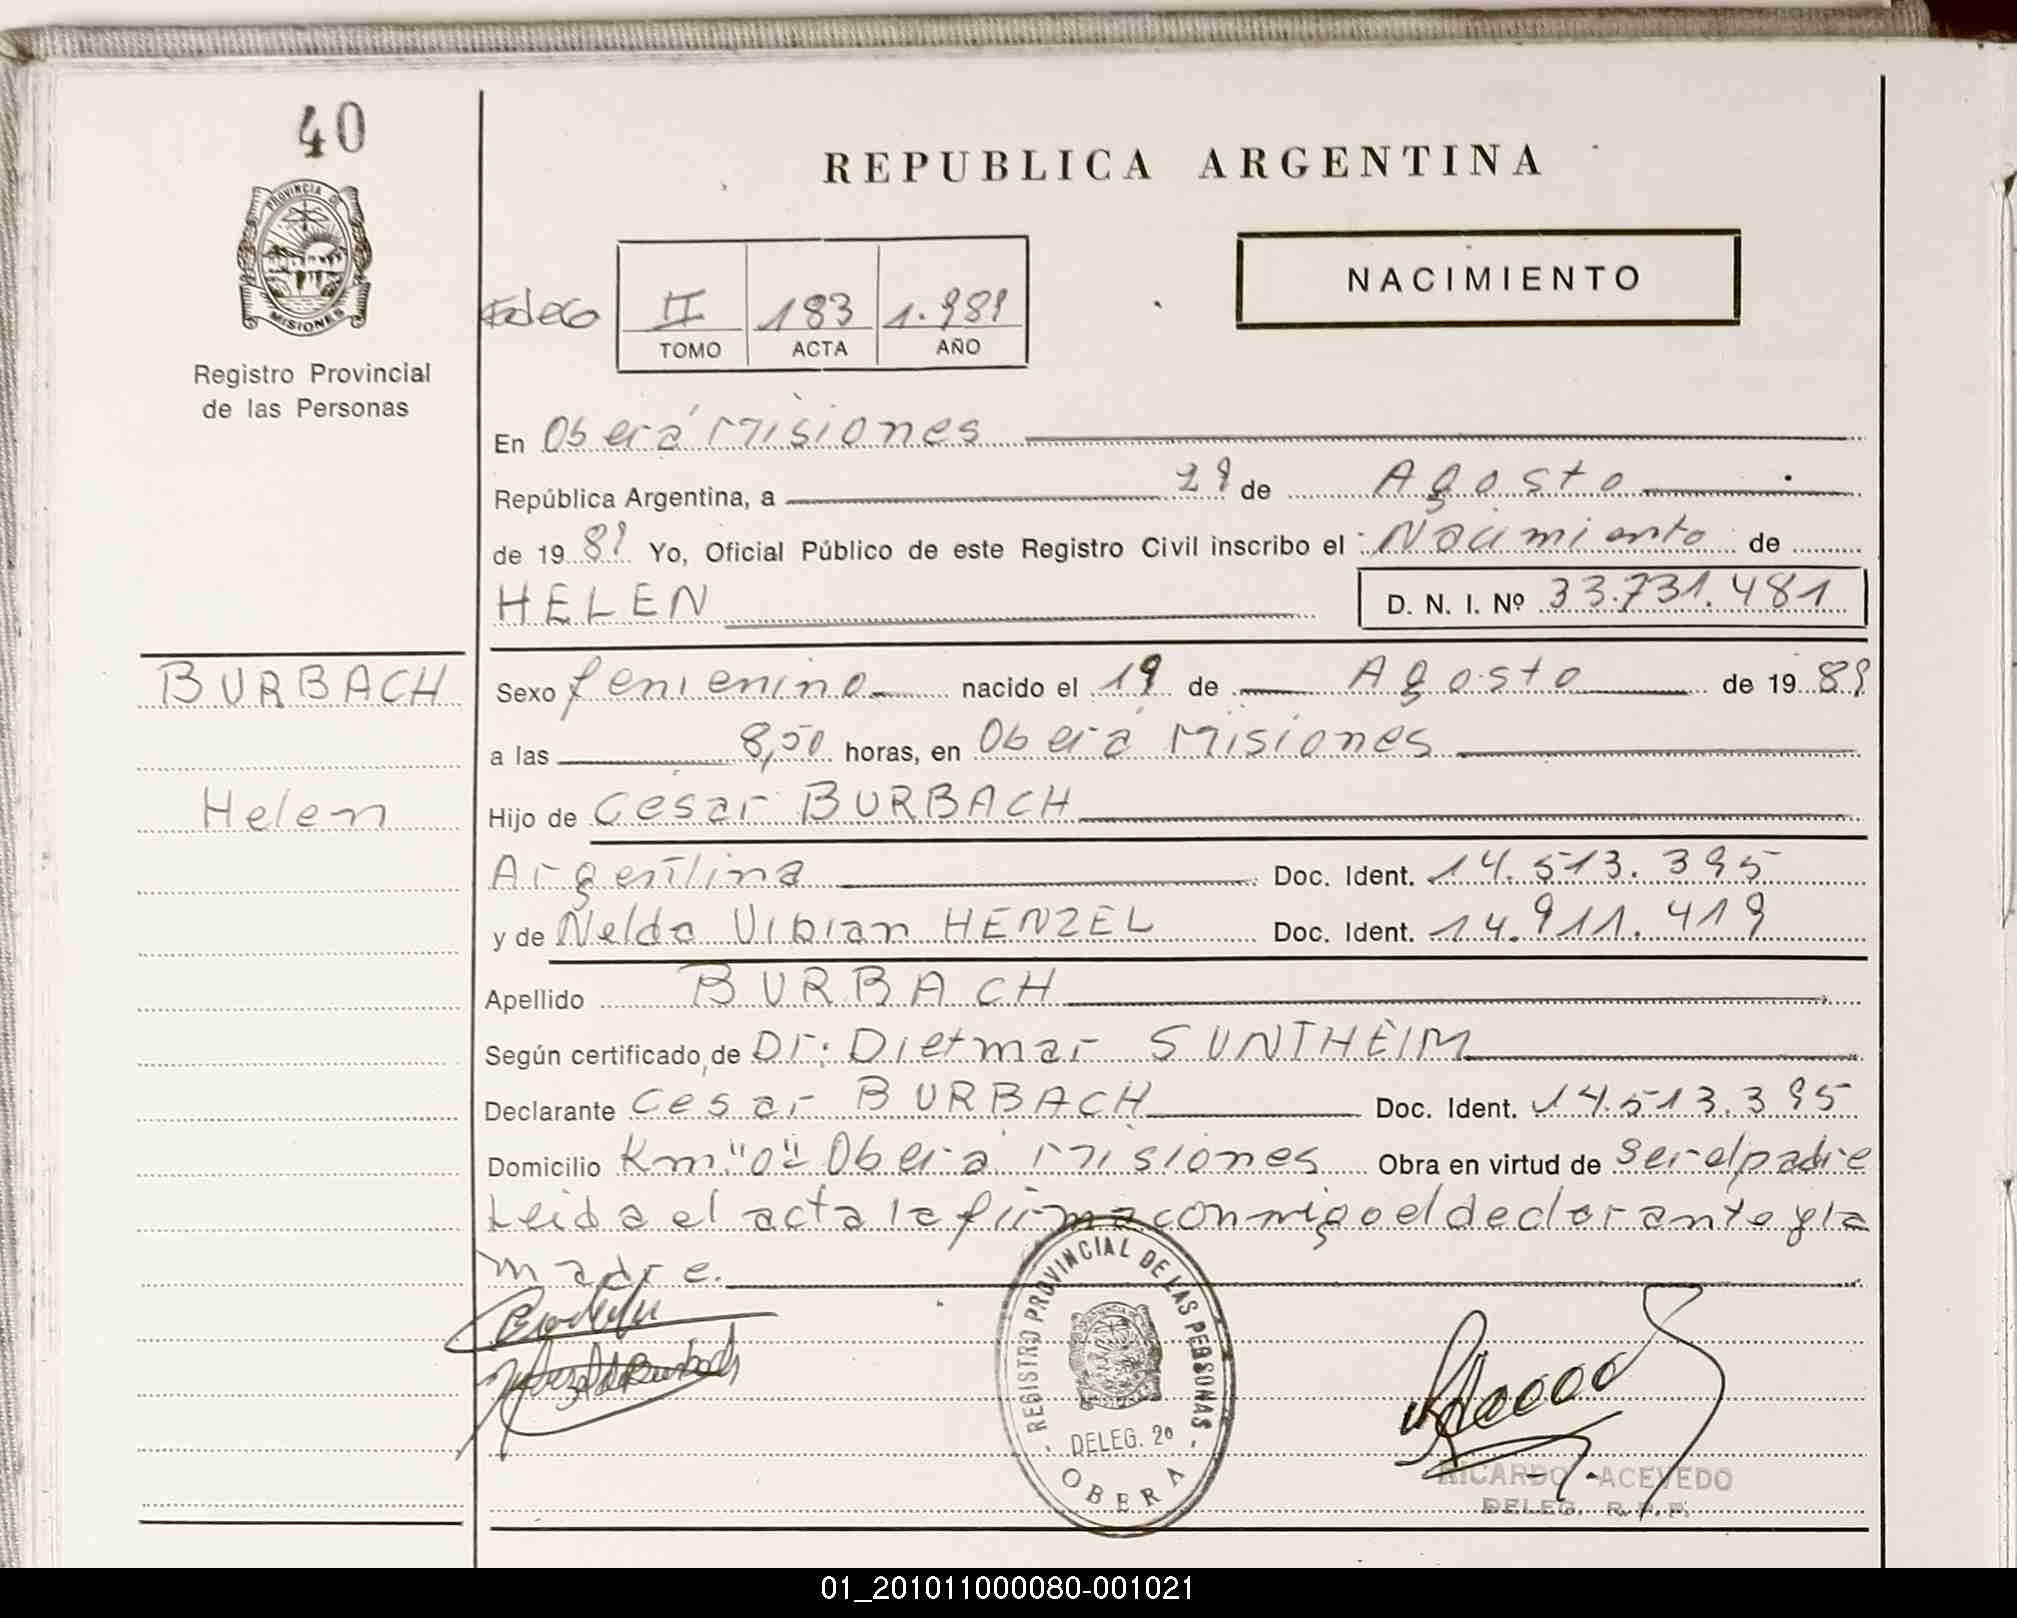 40
REPUBLICA ARGENTINA
PROVINCIA DE
MISIONES
NACIMIENTO
II 183 1.989
TOMO ACTA AÑO
Registro Provincial
de las Personas
En Oberá Misiones
República Argentina, a 29 de Agosto
de 19 89 Yo, Oficial Público de este Registro Civil inscribo el Nacimiento de
HELEN D. N. I. Nº 33.731.481
BURBACH
Sexo femenino nacido el 19 de Agosto de 19 89
a las 8,50 horas, en Oberá Misiones
Helen
Hijo de Cesar BURBACH
Argentina Doc. Ident. 14.513.395
y de Nelda Vibian HENZEL Doc. Ident. 14.911.419
Apellido BURBACH
Según certificado de Dr: Dietmar SUNTHEIM
Declarante Cesar BURBACH Doc. Ident. 14.513.395
Domicilio Km "0" Oberá Misiones Obra en virtud de ser el padre
Leida el acta la firma conmigo el declarante y la
madre.
REGISTRO PROVINCIAL DE LAS PERSONAS
DELEG. 2º
OBERA
RICARDO ACEVEDO
DELEG. R.P.P.
01_201011000080-001021